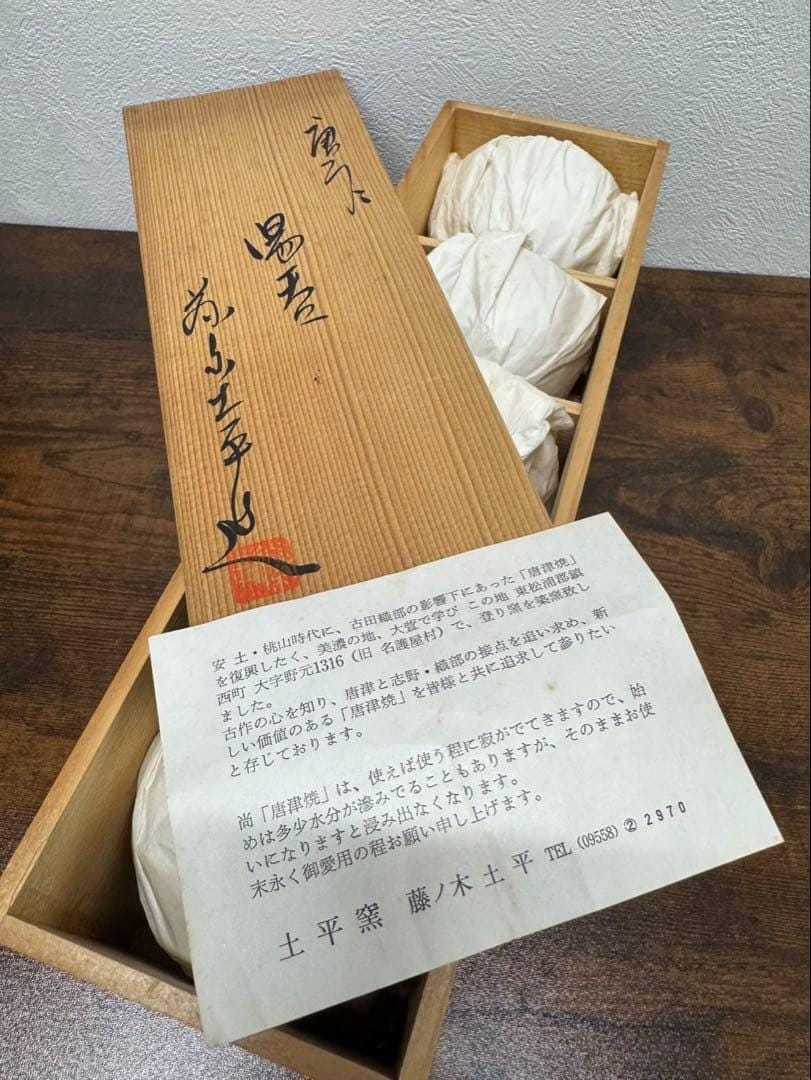 唐津
湯呑
藤ノ木土平造
安土・桃山時代に、古田織部の影響下にあった「唐津焼」
を復興したく、美濃の地、大萱で学び この地 東松浦郡鎮
西町 大字野元1316（旧 名護屋村）で、登り窯を築窯致し
ました。
古作の心を知り、唐津と志野・織部の接点を追い求め、新
しい価値のある「唐津焼」を皆様と共に追求して参りたい
と存じております。
尚「唐津焼」は、使えば使う程に寂がでてきますので、始
めは多少水分が滲みでることもありますが、そのままお使
いになりますと浸み出なくなります。
末永く御愛用の程お願い申し上げます。
土平窯 藤ノ木土平 TEL（09558）②2970